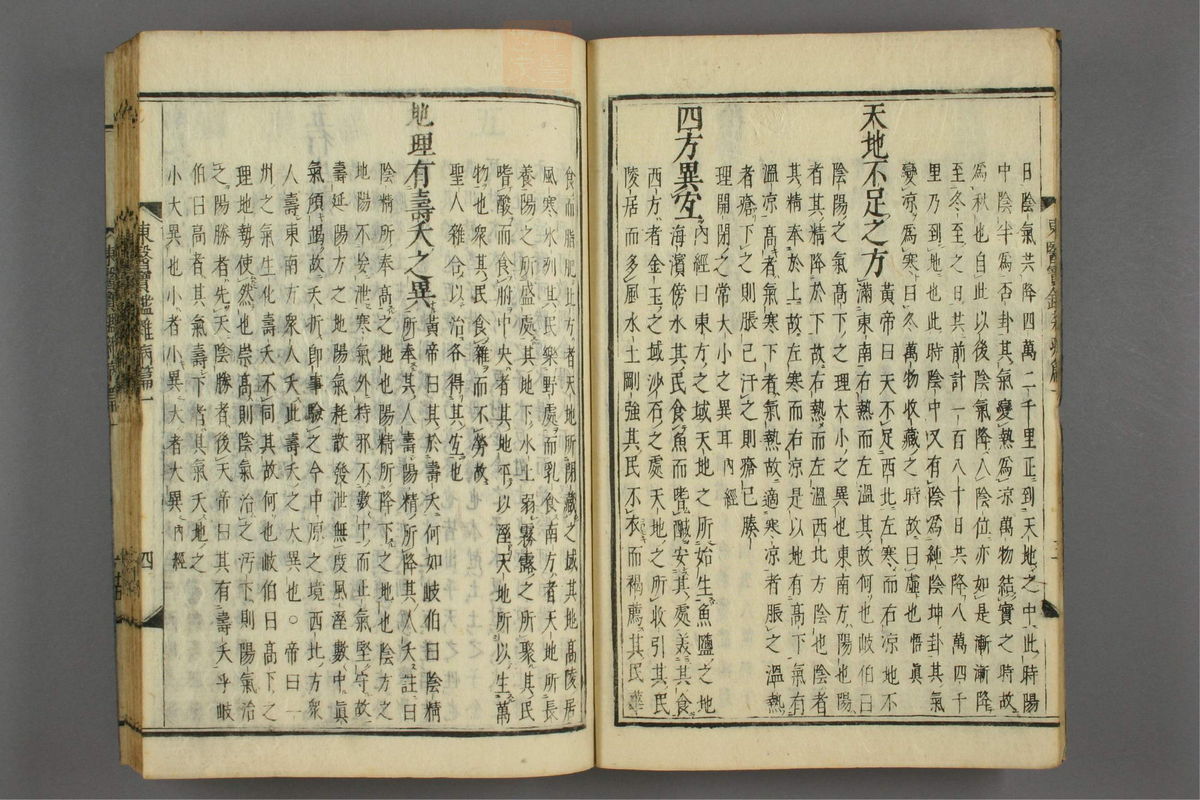 日陰氣共降四萬二千里正到天地之中此時陽
中陰半爲否卦其氣變熱爲凉萬物結實之時故
爲秋也自此以後陰氣降入陰位亦如是漸漸降
至冬至之日共前計一百八十日共降八萬四千
里乃到地也此時陰中又有陰爲純陰坤卦其氣
變凉爲寒曰冬萬物收藏之時故曰虛也悟眞
天地不足之方
黃帝曰天不足西北左寒而右凉地不
滿東南右熱而左溫其故何也岐伯曰
陰陽之氣髙下之理大小之異也東南方陽也陽
者其精降於下故右熱而左溫西北方陰也陰者
其精奉於上故左寒而右凉是以地有髙下氣有
溫凉髙者氣寒下者氣熱故適寒凉者脹之溫熱
者瘡下之則脹已汗之則瘡已腠
理開閉之常大小之異耳內經
四方異宜
內經曰東方之域天地之所始生魚鹽之地
海濱傍水其民食魚而嗜鹹安其處美其食
西方者金玉之域沙石之處天地之所收引其民
陵居而多風水土剛強其民不衣而褐薦其民華
食而脂肥北方者天地所閉藏之域其地髙陵居
風寒氷列其民樂野處而乳食南方者天地所長
養陽之所盛處其地下水土弱霧露之所聚其民
嗜酸而食胕中央者其地平以溼天地所以生萬
物也衆其民食雜而不勞故
聖人雜合以治各得其宜也
地理有壽夭之異
黃帝曰其於壽夭何如岐伯曰陰精
所奉其人壽陽精所降其人夭註曰
陰精所奉髙之地也陽精所降下之地也陰方之
地陽不妄泄寒氣外持邪不數中而正氣堅守故
壽延陽方之地陽氣耗散發泄無度風溼數中眞
氣傾竭故夭折卽事驗之今中原之境西北方衆
人壽東南方衆人夭此壽夭之大異也○帝曰一
州之氣生化壽夭不同其故何也岐伯曰髙下之
理地勢使然也崇髙則陰氣治之汚下則陽氣治
之陽勝者先天陰勝者後天帝曰其有壽夭乎岐
伯曰髙者其氣壽下者其氣夭地之
小大異也小者小異大者大異內經
東醫寶鑑雜病篇一
四